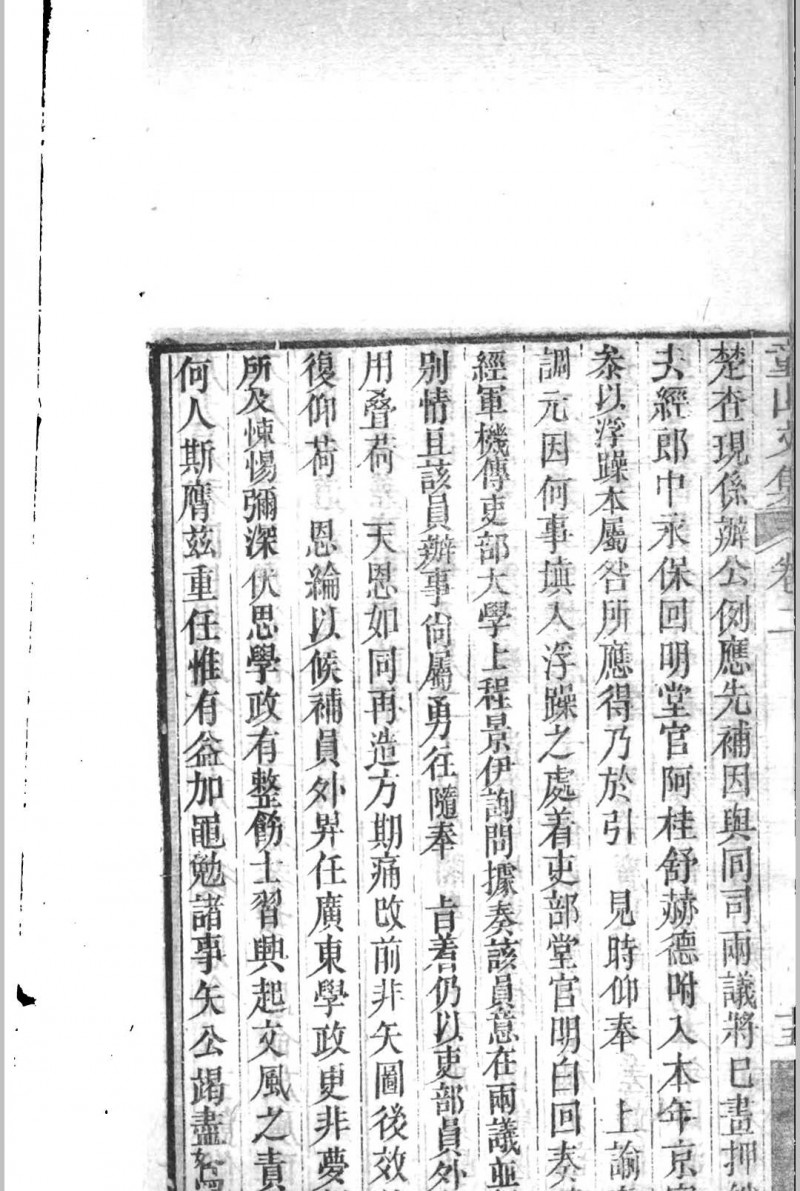 童山文集 卷二
楚查現係辦公例應先補因與同司兩議將已畫押
夫經郎中永保回明堂官阿桂舒赫德咐入本年京
叅以浮躁本屬咎所應得乃於引 見時仰奉 上諭
調元因何事填入浮躁之處着吏部堂官明白回奏
經軍機傳吏部大學士程景伊詢問據奏該員意在兩議並
別情且該員辦事尙屬勇往隨奉 旨着仍以吏部員外
用叠荷 天恩如同再造方期痛改前非矢圖後效
復仰荷 恩綸以候補員外畀任廣東學政更非夢
所及悚惕彌深伏思學政有整飭士習興起文風之責
何人斯膺茲重任惟有益加黽勉諸事矢公竭盡